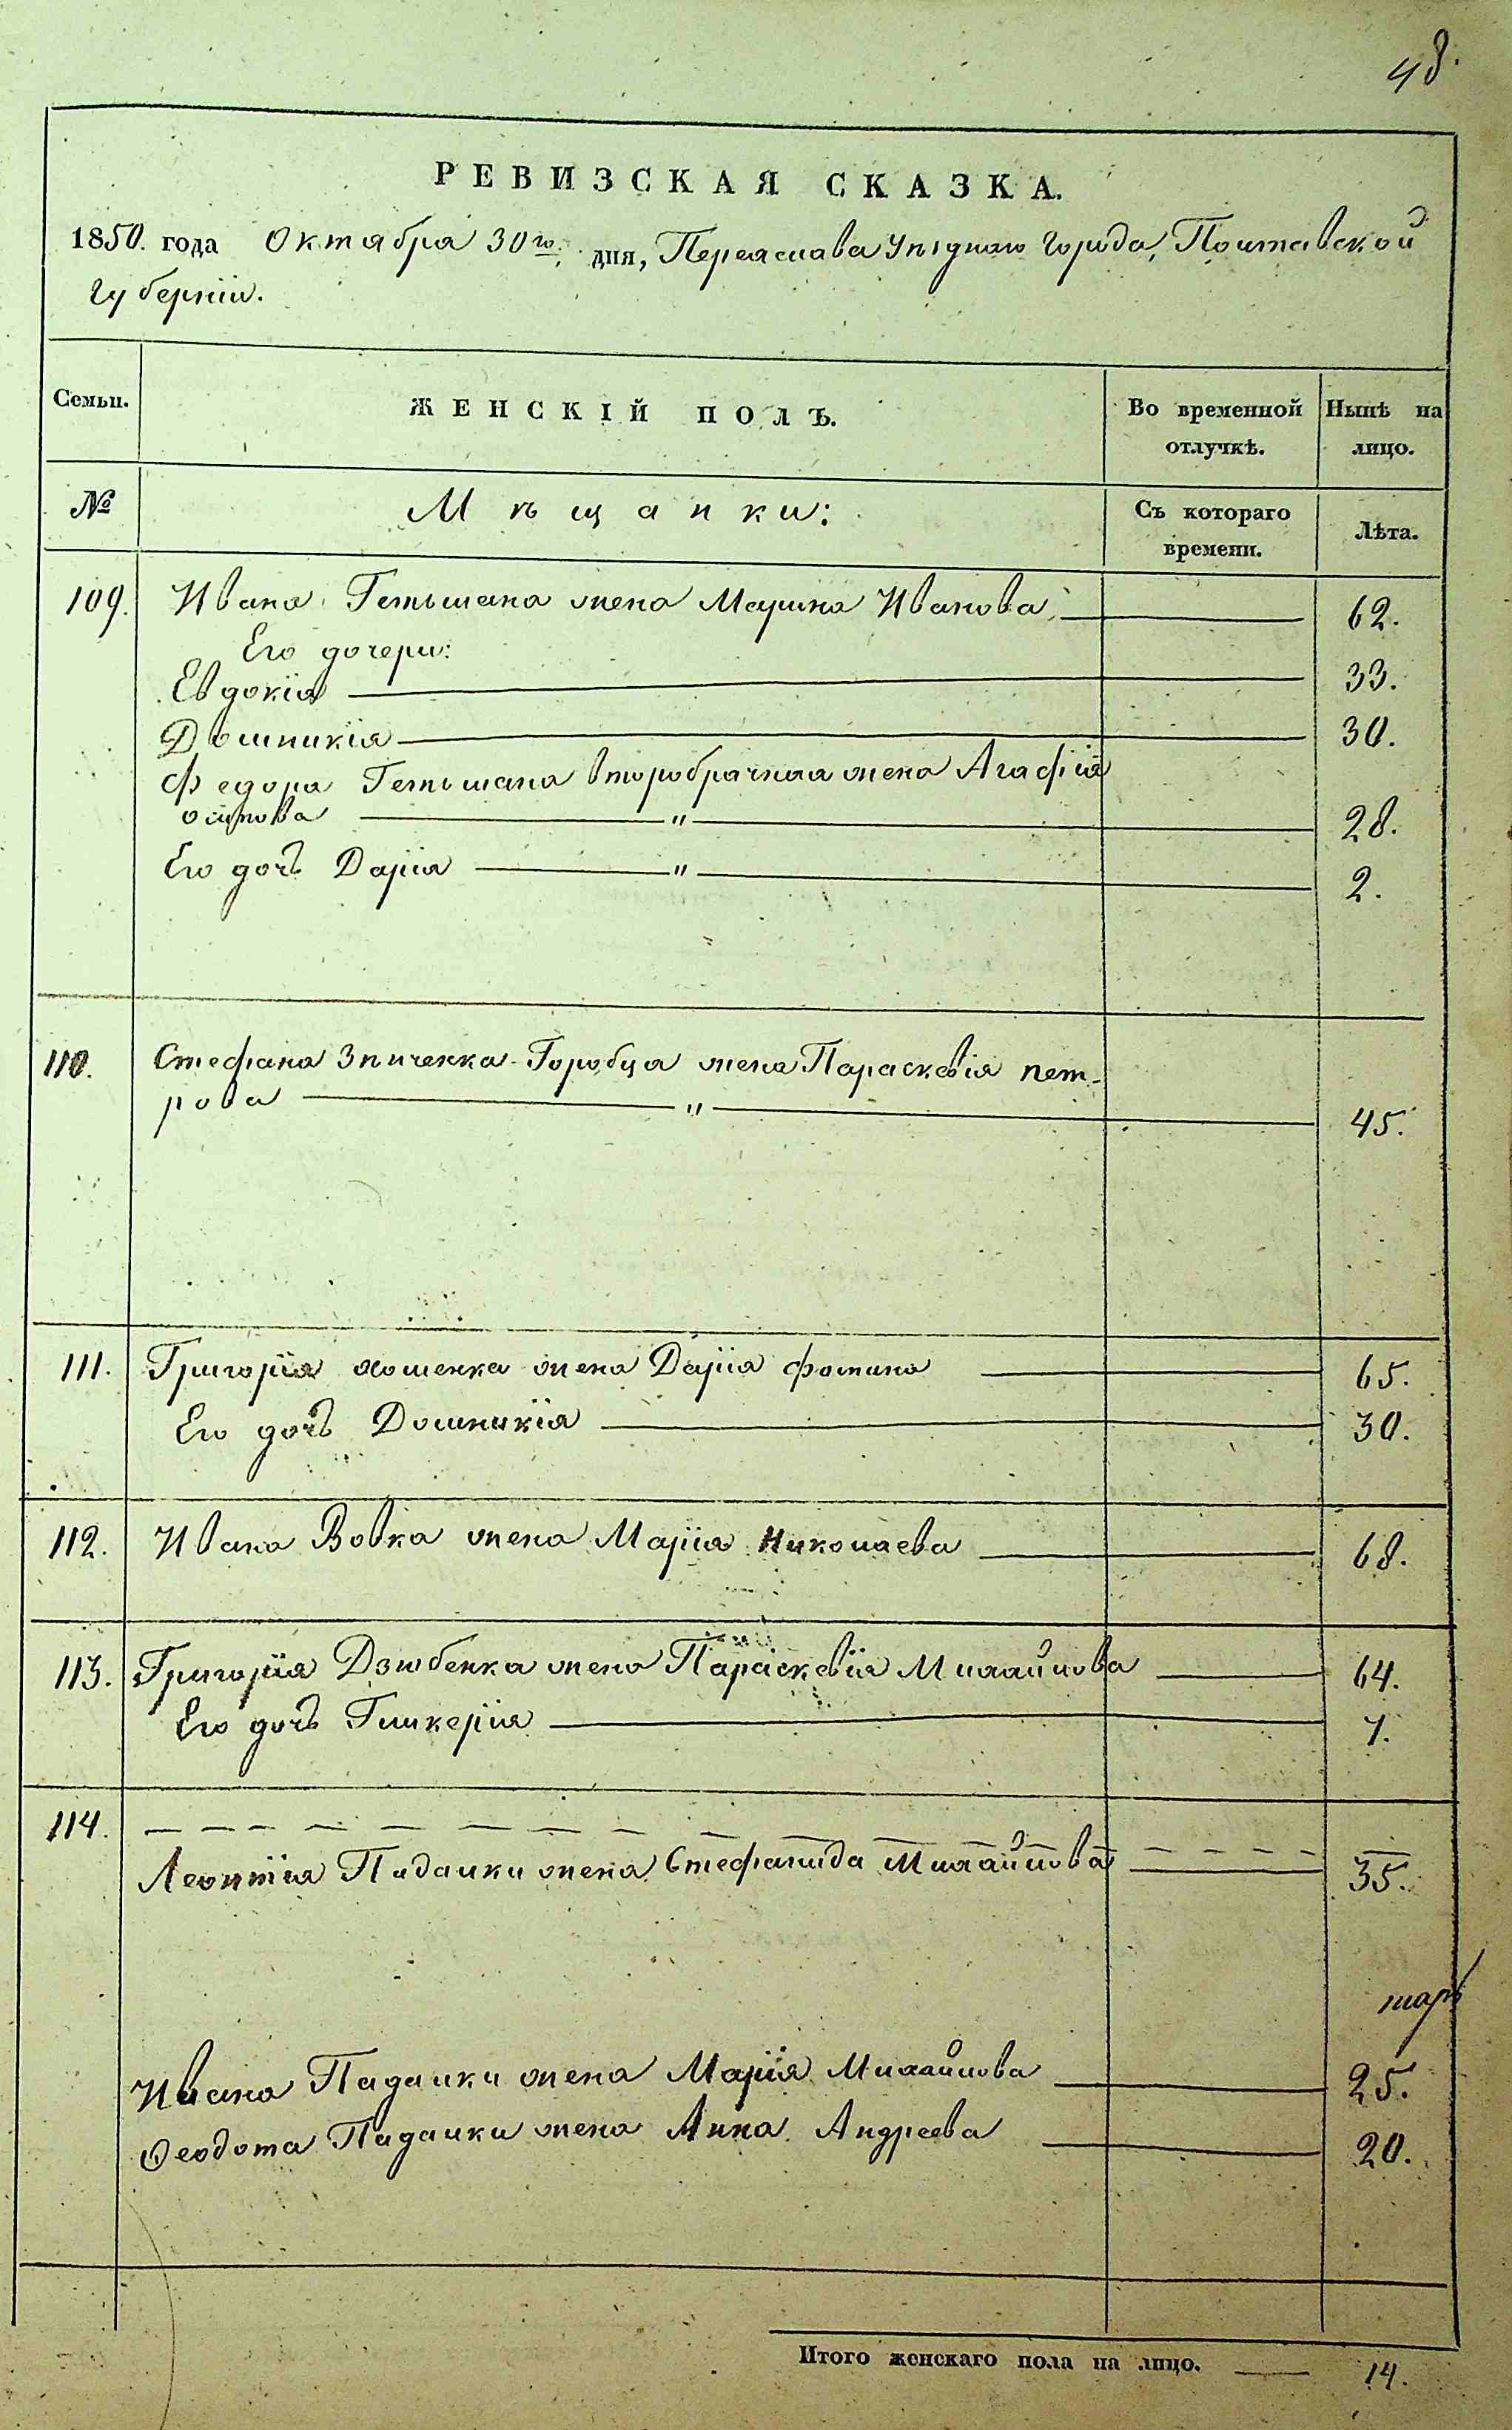 48.
РЕВИЗСКАЯ СКАЗКА.
1850. года Октября 30го дня, Переяслава Уѣзднаго Города, Полтавской
Губерніи.
Семьи. ЖЕНСКІЙ ПОЛЪ. Во временной отлучкѣ. Нынѣ на лицо.
№ Мѣщанки: Съ котораго времени. Лѣта.
109. Ивана Гетьмана жена Марина Иванова 62.
Его дочери:
Евдокія 33.
Домникія 30.
Федора Гетьмана второбрачная жена Агафія
Осипова " 28.
Его дочь Дарія " 2.
110. Стефана Зинченка-Горобца жена Параскевія Пет-
рова " 45.
111. Григорія Хоменка жена Дарія Фомина 65.
Его дочь Домникія 30.
112. Ивана Вовка жена Марія Николаева 68.
113. Григорія Дзюбенка жена Параскевія Михайлова 64.
Его дочь Гликерія 7.
114.
Леонтія Падалки жена Стефанида Михайлова 35.
Ивана Падалки жена Марія Михайлова 25.
Феодота Падалки жена Анна Андреева 20.
Итого женскаго пола на лицо. 14.